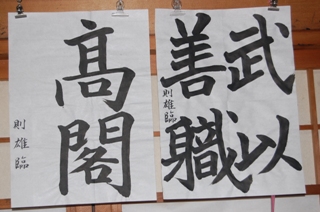 武以
善職
則雄臨
高閣
則雄臨